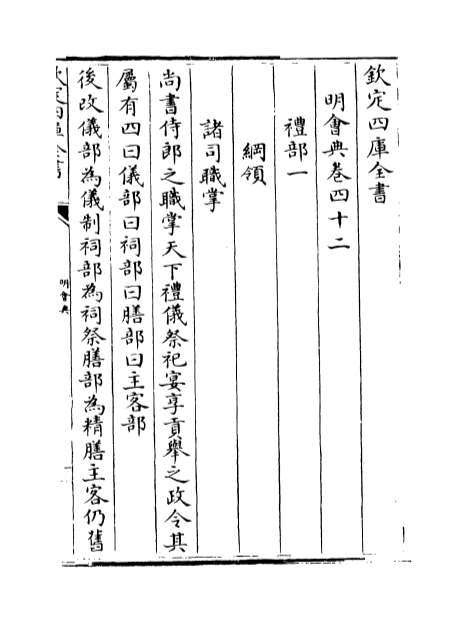 欽定四庫全書
明會典卷四十二
禮部一
綱領
諸司職掌
尚書侍郎之職掌天下禮儀祭祀宴享貢舉之政令其
屬有四曰儀部曰祠部曰膳部曰主客部
後改儀部為儀制祠部為祠祭膳部為精膳主客仍舊
欽定四庫全書
明會典